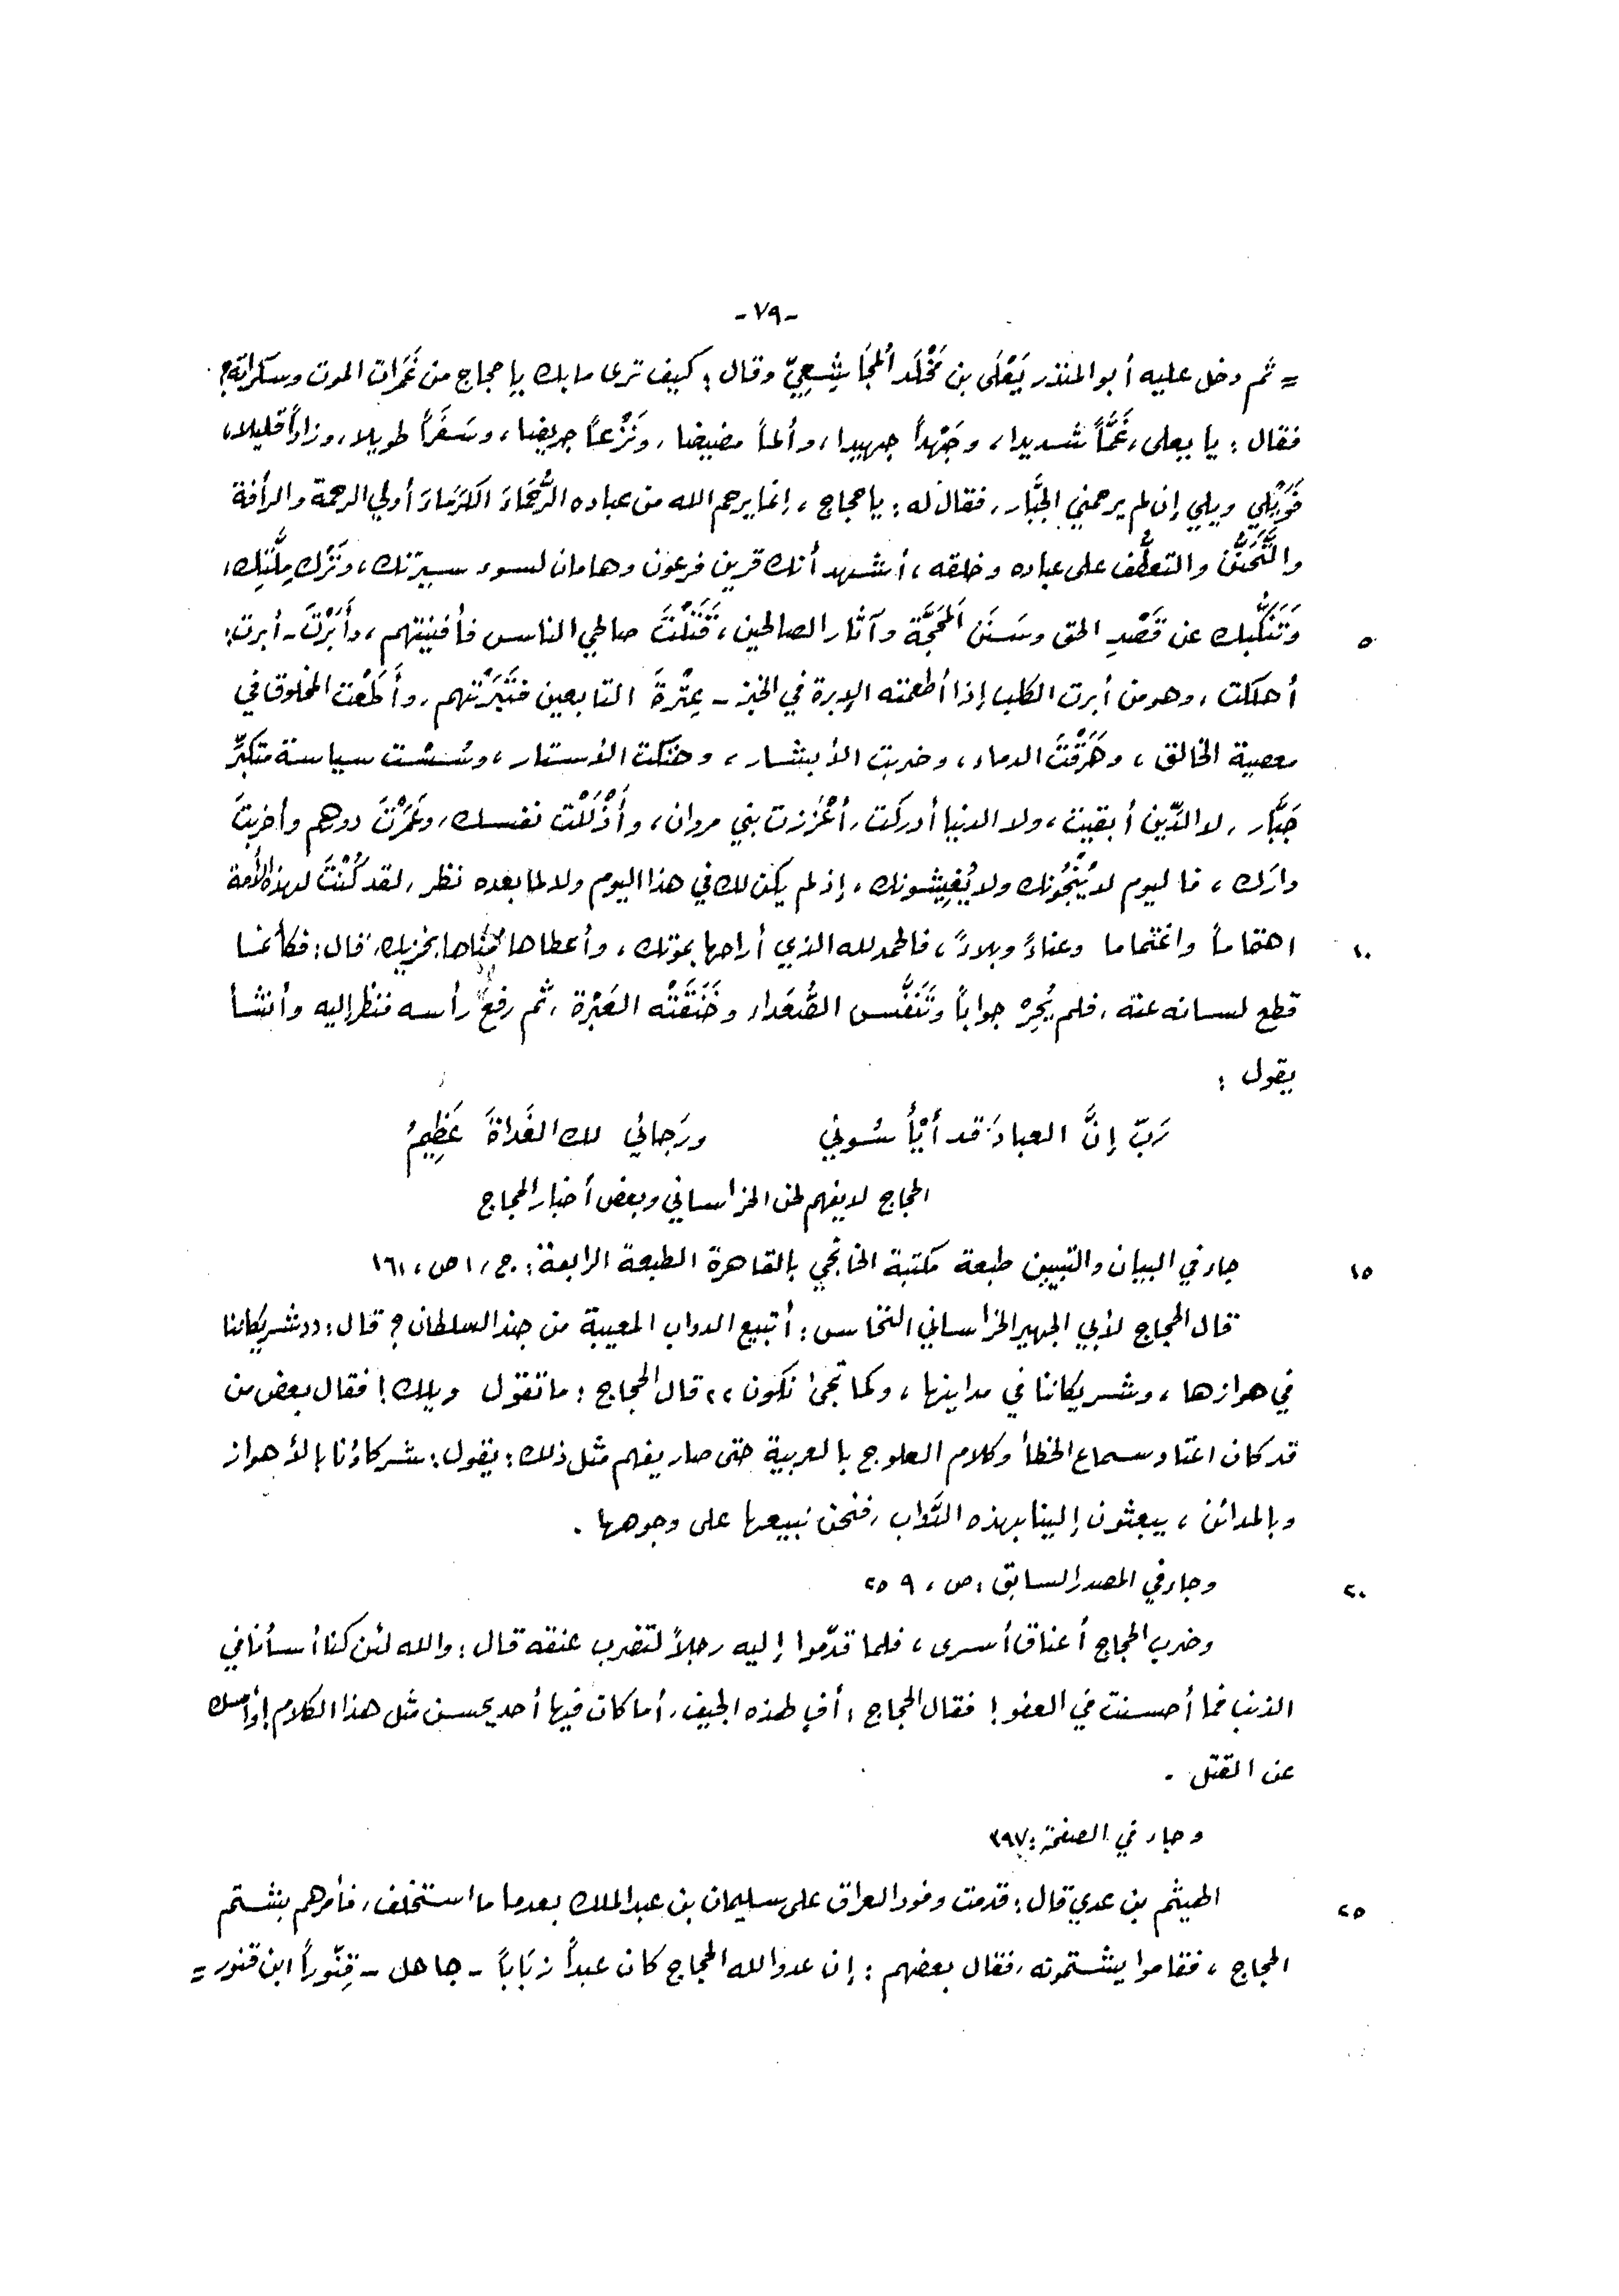 -٧٩-
= ثم دخل عليه أبو المنذر يَعْلَى بن مَخْلَد المُجَاشِعِيّ وقال : كيف ترى ما بك يا حجاج من غَمَرات الموت وسكراته؟
فقال : يا يعلى، غَمّاً شديدا، وجَهْداً جهيدا، وألماً مضيضا، ونَزْعاً جريضا، وسَفَراً طويلا، وزاداً قليلا،
فَوَيْلِي ويلي إن لم يرحمني الجبَّار، فقال له : يا حجاج، إنما يرحم الله من عباده الرُّحَمَاءَ الكُرَمَاءَ أولي الرحمة والرأفة
والتَّحَنُّن والتعطُّف على عباده وخلقه، أشهد أنك قرين فرعون وهامان لسوء سيرتك، وتَرْك مِلَّتِك،
وَتَنَكُّبك عن قَصْدِ الحق وسَنَن المَحَجَّة وآثار الصالحين، قَتَلْتَ صالحي الناس فأفنيتهم، وأَبَرْتَ - أبرت:
٥
أهلكت، وهو من أبرت الكلب إذا أطعمته الإبرة في الخبز - عِتْرةَ التابعين فتَبَرْتهم، وأَطَعْت المخلوق في
معصية الخالق، وهَرَقْتَ الدماء، وضربت الأبشار، وهتكت الأستار، وسُسْت سياسة متكبِّر
جَبَّار، لا الدّين أبقيت، ولا الدنيا أدركت، أعْزَزت بني مروان، وأَذْلَلْت نفسك، وعَمَرْتَ دورهم وأخربتَ
دارك، فاليوم لا يُنْجُونك ولا يُغِيثونك، إذ لم يكن لك في هذا اليوم ولا لما بعده نظر، لقد كُنْتَ لهذه الأمة
اهتماماً واغتماما وعناءً وبلاءً، فالحمد لله الذي أراحها بموتك، وأعطاها مُناها بخزيك، قال: فكأنما
١٠
قطع لسانه عنه، فلم يُحِرْ جواباً وتَنَفَّس الصُّعَداء وخَنَقَتْه العَبْرة، ثم رفع رأسه فنظر إليه وأنشأ
يقول :
رَبّ إنَّ العبادَ قد أيْأَسُوني ورَجائي لك الغَداةَ عَظِيمُ
الحجاج لا يفهم لحن الخراساني وبعض أخبار الحجاج
جاء في البيان والتبيين طبعة مكتبة الخانجي بالقاهرة الطبعة الرابعة : ج، ١ ص، ١٦١
١٥
قال الحجاج لأبي الجهير الخراساني النخاس : أتبيع الدواب المعيبة من جند السلطان؟ قال : ((شريكاتنا
في هوازها، وشريكاتنا في مداينها، وكما تجئ نكون)) قال الحجاج : ما تقول ويلك! فقال بعض من
قد كان اعتاد سماع الخطأ وكلام العلوج بالعربية حتى صار يفهم مثل ذلك : يقول : شركاؤنا بالأهواز
وبالمدائن، يبعثون إلينا بهذه الدَّواب، فنحن نبيعها على وجوهها .
وجاء في المصدر السابق : ص، ٢٥٩
٢٠
وضرب الحجاج أعناق أسرى، فلما قدّموا إليه رجلاً لتضرب عنقه قال : والله لئن كنا أسأنا في
الذنب فما أحسنت في العفو! فقال الحجاج : أفٍ لهذه الجيف، أما كان فيها أحد يحسن مثل هذا الكلام! وأمسك
عن القتل .
وجاء في الصفحة : ٣٩٧
الهيثم بن عدي قال : قدمت وفود العراق على سليمان بن عبد الملك بعدما ما استخلف، فأمرهم بشتم
٢٥
الحجاج، فقاموا يشتمونه، فقال بعضهم : إن عدو الله الحجاج كان عبداً زَبَاباً - جاهل - قِنّوراً ابن قنور =